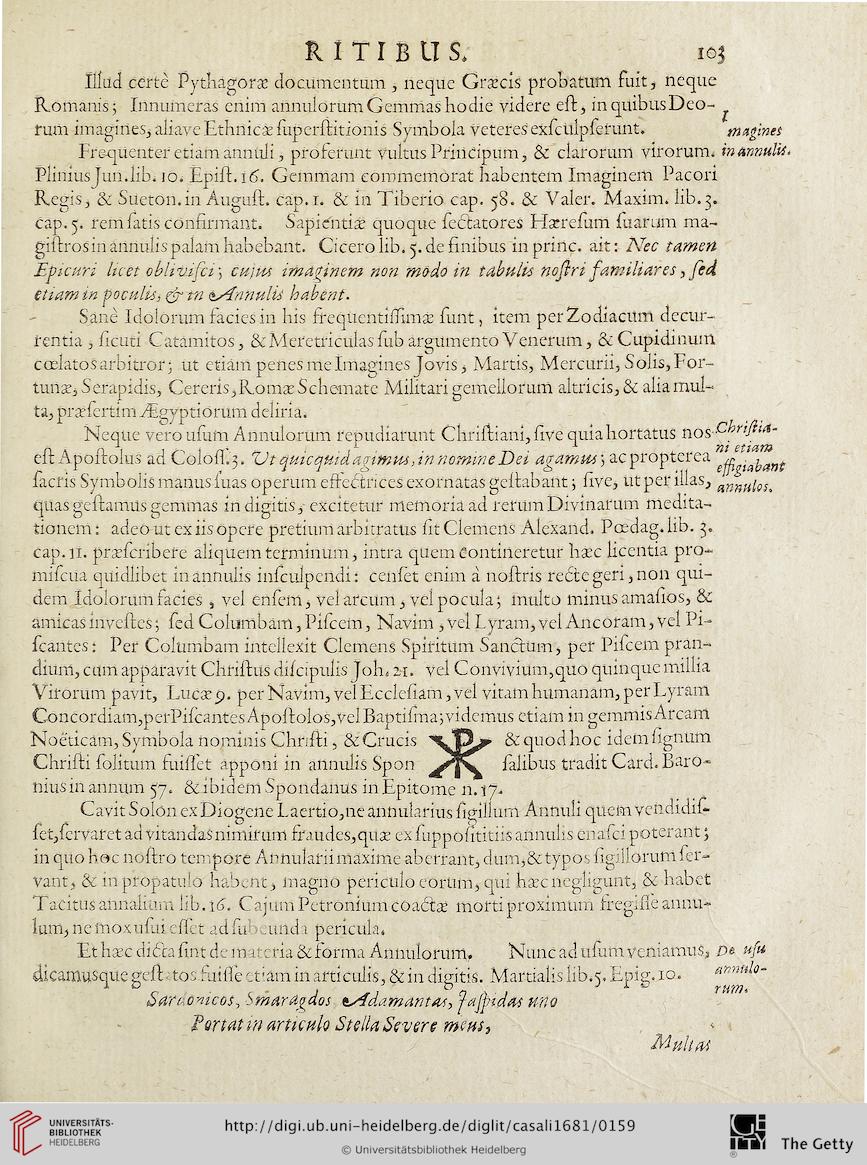 RITIBUS. 103
Illud certè Pythagoræ documentum , neque Græcis probatum fuit, neque
Romanis; Innumeras enim annulorum Gemmas hodie videre eſt, in quibus Deo-
rum imagines, aliave Ethnicæ ſuperſtitionis Symbola veteres exſculpſerunt.
Imagines
in annulis.
Frequenter etiam annuli, proferunt vultus Principum, & clarorum virorum.
Plinius Jun. lib. 10. Epiſt. 16. Gemmam commemorat habentem Imaginem Pacori
Regis, & Sueton. in Auguſt. cap. 1. & in Tiberio cap. 58. & Valer. Maxim. lib. 3.
cap. 5. rem ſatis confirmant. Sapientiæ quoque ſectatores Hæreſum ſuarum ma-
giſtros in annulis palam habebant. Cicero lib. 5. de finibus in princ. ait: Nec tamen
Epicuri licet obliviſci; cujus imaginem non modo in tabulis noſtri familiares, ſed
etiam in poculis, & in Annulis habent.
Sanè Idolorum facies in his frequentiſſimæ ſunt, item per Zodiacum decur-
rentia , ſicuti Catamitos , & Meretriculas ſub argumento Venerum, & Cupidinum
cœlatos arbitror; ut etiam penes me Imagines Jovis, Martis, Mercurii, Solis, For-
tunæ, Serapidis, Cereris, Romæ Schemate Militari gemellorum altricis, & alia mul-
ta, præſertim Ægyptiorum deliria.
Neque vero uſum Annulorum repudiarunt Chriſtiani, ſive quia hortatus nos
Chriſtia-
ni etiam
effigiabant
annulos.
eſt Apoſtolus ad Coloſſ. 3. Ut quicquid agimus, in nomine Dei agamus; ac propterea
ſacris Symbolis manus ſuas operum effectrices exornatas geſtabant; ſive, ut per illas,
quas geſtamus gemmas in digitis, excitetur memoria ad rerum Divinarum medita-
tionem: adeo ut ex iis opere pretium arbitratus ſit Clemens Alexand. Pœdag. lib. 3.
cap. 11. præſcribere aliquem terminum, intra quem contineretur hæc licentia pro-
miſcua quidlibet in annulis inſculpendi: cenſet enim à noſtris recte geri, non qui-
dem Idolorum facies , vel enſem, vel arcum, vel pocula; multo minus amaſios, &
amicas inveſtes; ſed Columbam, Piſcem, Navim, vel Lyram, vel Ancoram, vel Pi-
ſcantes: Per Columbam intellexit Clemens Spiritum Sanctum, per Piſcem pran-
dium, cum apparavit Chriſtus diſcipulis Joh. 21. vel Convivium, quo quinque millia
Virorum pavit, Lucæ 9. per Navim, vel Eccleſiam, vel vitam humanam, per Lyram
Concordiam, per Piſcantes Apoſtolos, vel Baptiſma; videmus etiam in gemmis Arcam
Noëticam, Symbola nominis Chriſti, & Crucis ☧ & quod hoc idem ſignum
Chriſti ſolitum fuiſſet apponi in annulis Spon ſalibus tradit Card. Baro-
nius in annum 57. & ibidem Spondanus in Epitome n. 17.
Cavit Solon ex Diogene Laertio, ne annularius ſigillum Annuli quem vendidiſ-
ſet, ſervaret ad vitandas nimirum fraudes, quæ ex ſuppoſititiis annulis enaſci poterant;
in quo hoc noſtro tempore Annularii maxime aberrant, dum, & typos ſigillorum ſer-
vant, & in propatulo habent, magno periculo eorum, qui hæc negligunt, & habet
Tacitus annalium lib. 16. Cajum Petronium coactæ morti proximum fregiſſe annu-
lum, ne mox uſui eſſet ad ſubeunda pericula.
Et hæc dicta ſint de materia & forma Annulorum. Nunc ad uſum veniamus,
De uſu
annulo-
rum.
dicamusque geſtatos fuiſſe etiam in articulis, & in digitis. Martialis lib. 5. Epig. 10.
Sardonicos, Smaragdos Adamantas, Jaſpidas uno
Portat in articulo Stella Severe meus,
Multas
UNIVERSITÄTS-
BIBLIOTHEK
HEIDELBERG
http://digi.ub.uni-heidelberg.de/diglit/casali1681/0159
© Universitätsbibliothek Heidelberg
The Getty